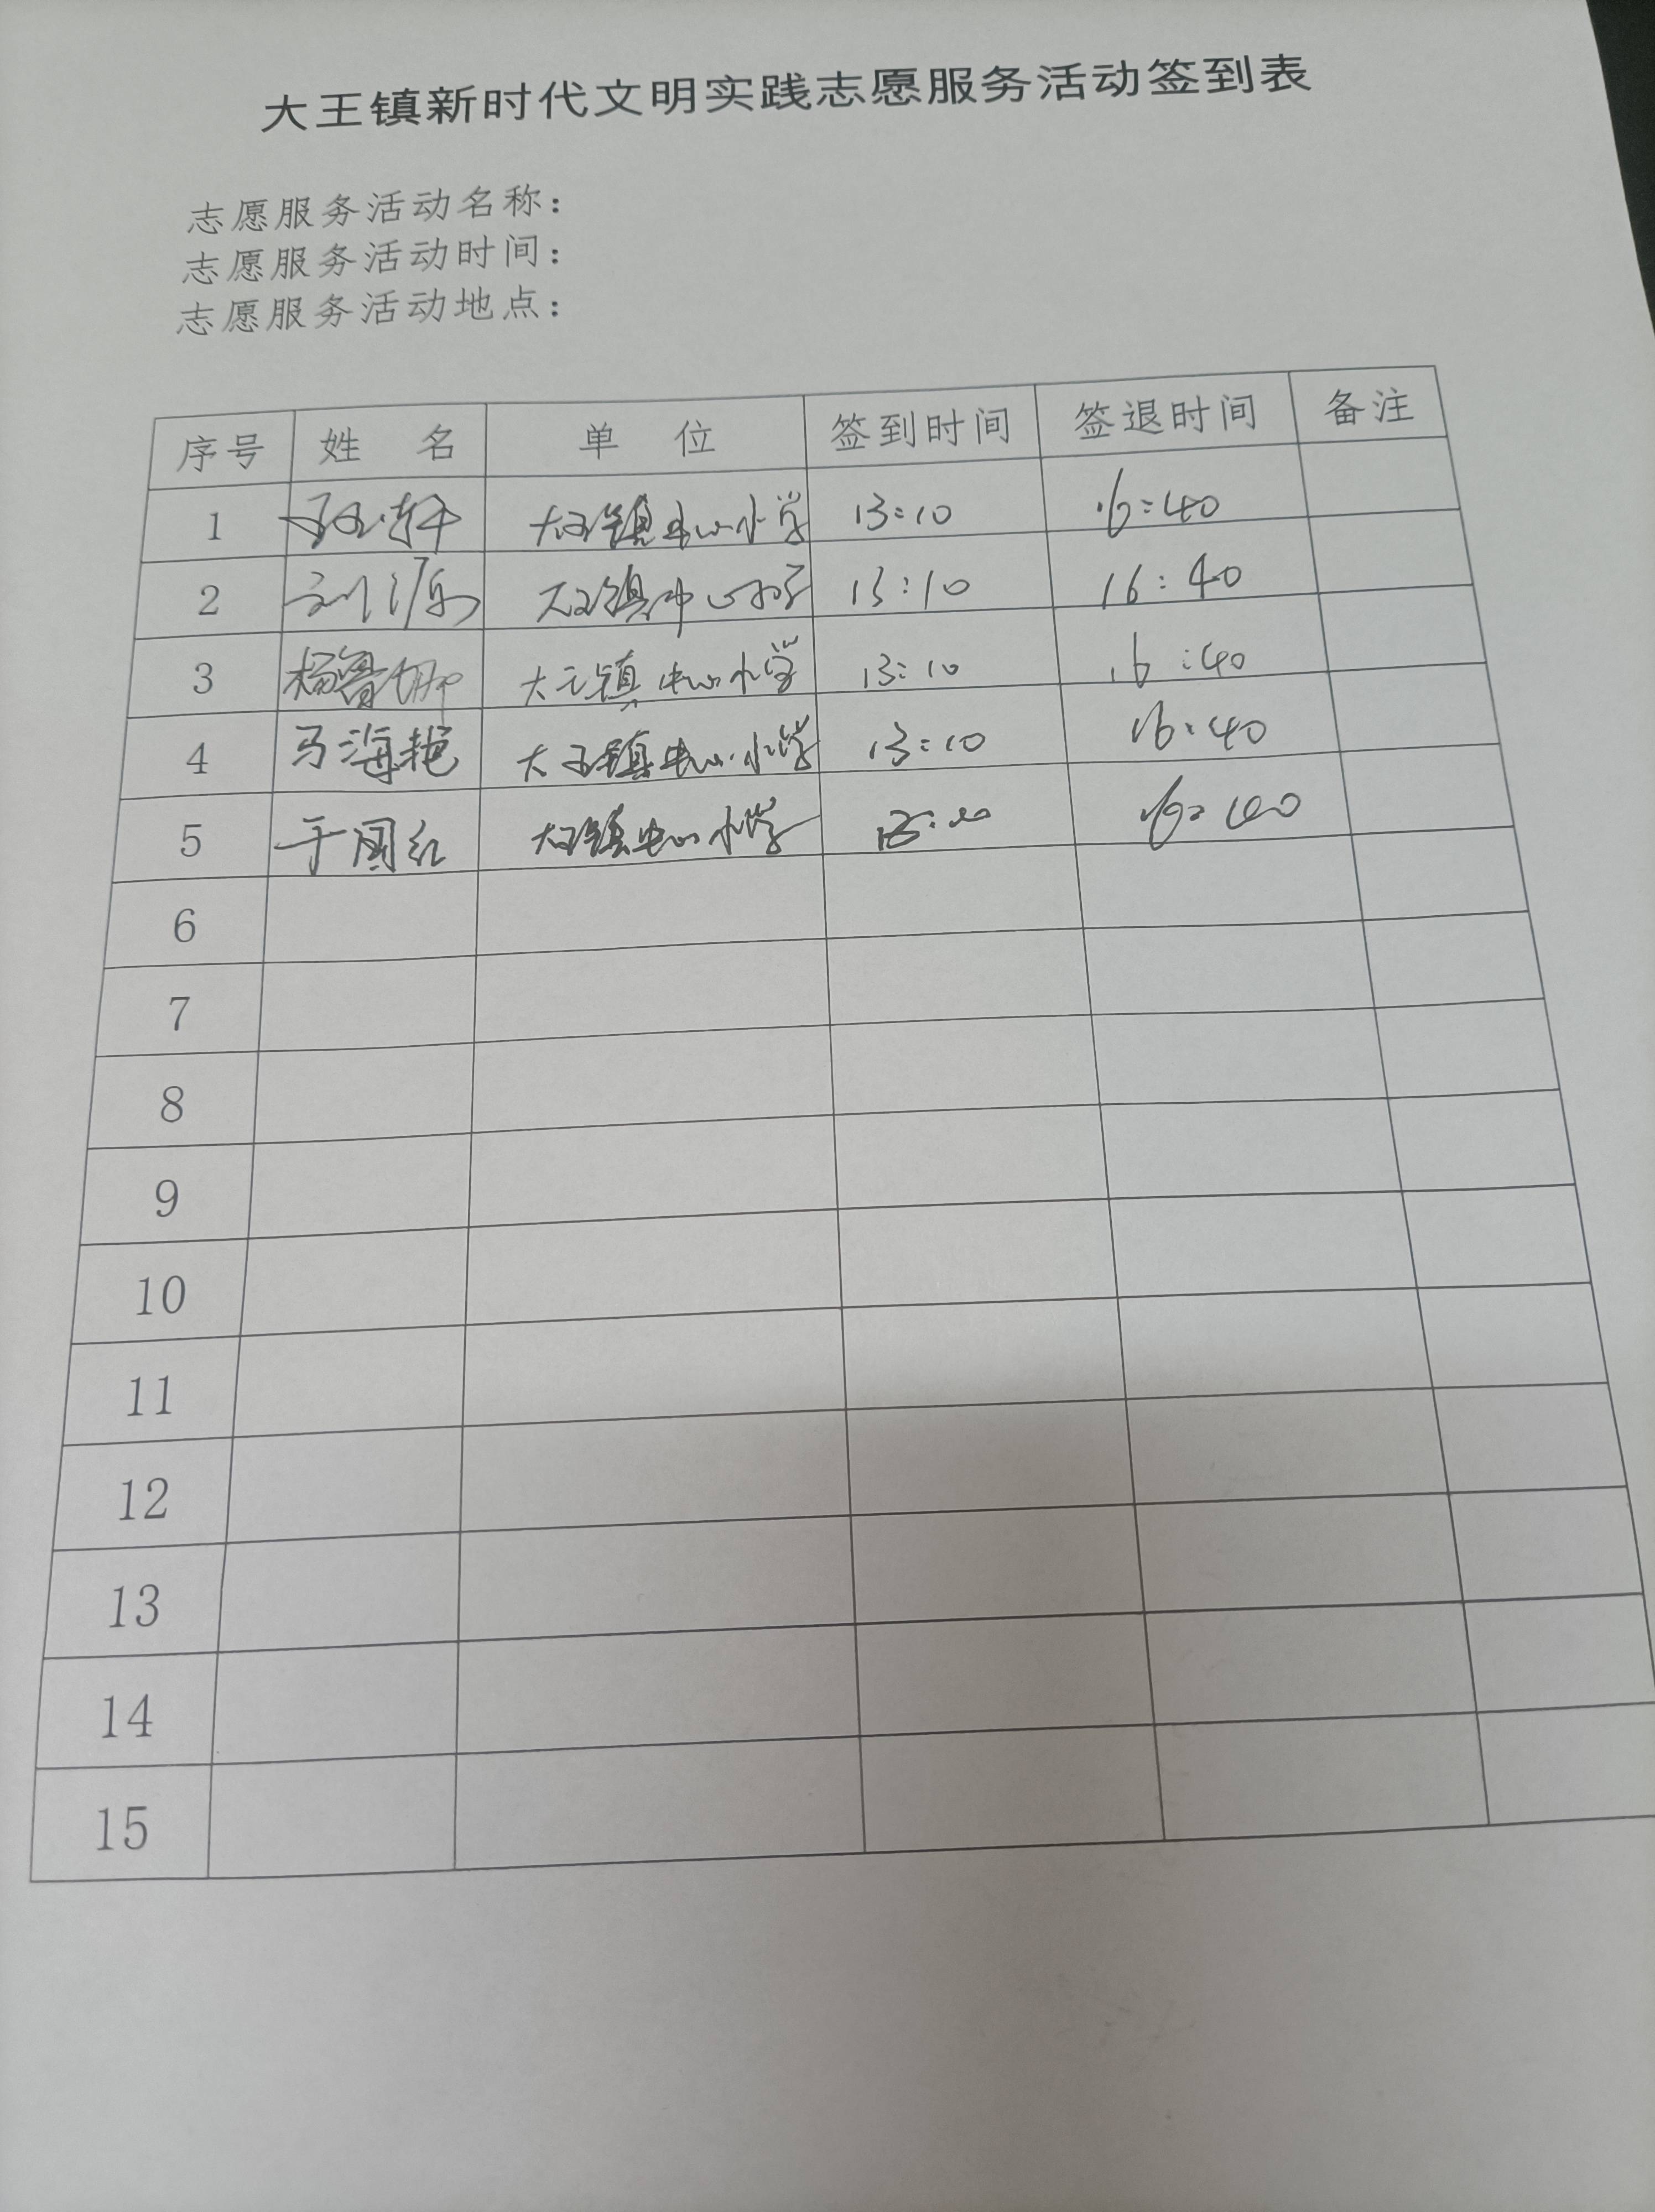 大王镇新时代文明实践志愿服务活动签到表
志愿服务活动名称：
志愿服务活动时间：
志愿服务活动地点：
序号 姓 名 单 位 签到时间 签退时间 备注
1 大王镇中心小学 13:10 16:40
2 刘源 大王镇中心小学 13:10 16:40
3 大王镇中心小学 13:10 16:40
4 马海艳 大王镇中心小学 13:10 16:40
5 于国红 大王镇中心小学 16:40
6
7
8
9
10
11
12
13
14
15